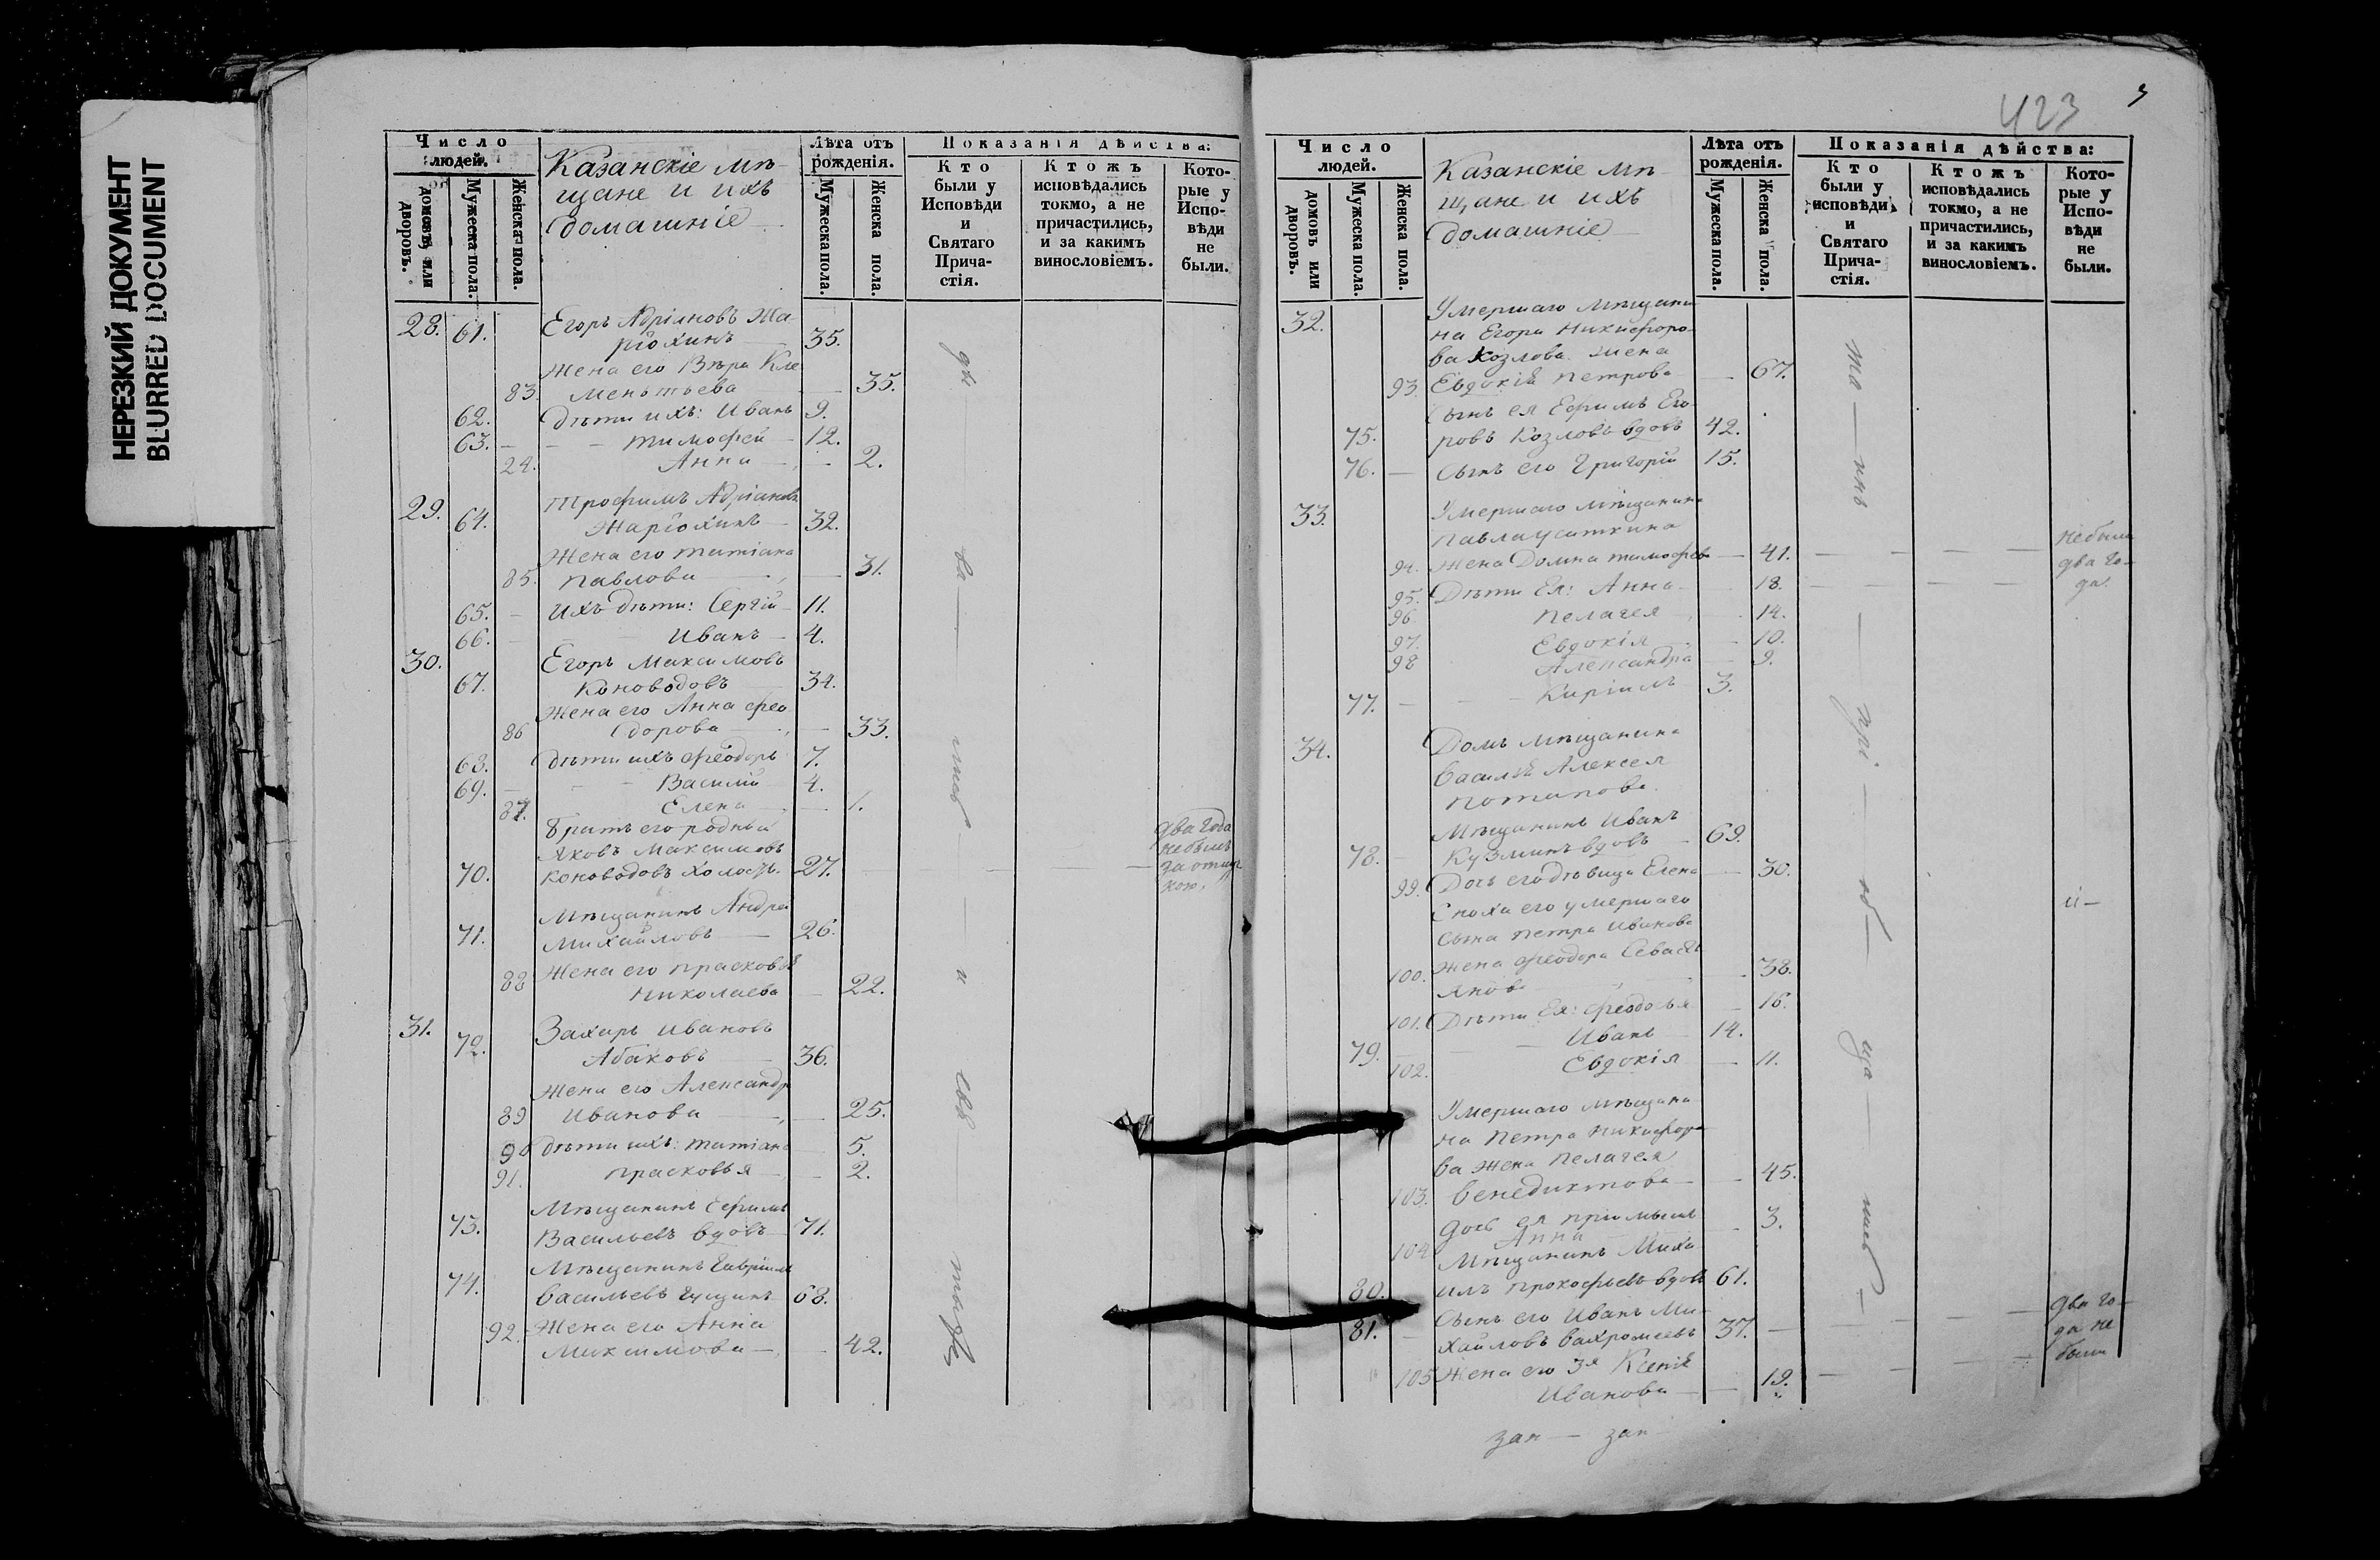 НЕРЕЗКИЙ ДОКУМЕНТ
BLURRED DOCUMENT
Число людей.
домовъ или дворовъ.
Мужеска пола.
Женска пола.
Казанскіе мѣ-
щане и ихъ
домашніе
Лѣта отъ рожденія.
Мужеска пола.
Женска пола.
Показанія дѣйства:
Кто были у Исповѣди и Святаго Прича-стія.
Ктожъ исповѣдались токмо, а не причастились, и за какимъ винословіемъ.
Кото-рые у Испо-вѣди не были.
28. 61. Егоръ Адріановъ Жа-
рюхинъ 35.
Жена его Вѣра Кле
83. ментьева 35.
62. Дѣти ихъ: Иванъ 9.
63. Тимофей 12.
24. Анна 2.
29. 64. Трофимъ Адріановъ
Жарюхинъ 32.
Жена его Татіана
85. Павлова 31.
65. Ихъ дѣти: Сергій 11.
66. Иванъ 4.
30. Егоръ Максимовъ
67. Коноводовъ 34.
Жена его Анна Фео
86 дорова 33.
68. Дѣти ихъ Феодоръ 7.
69. Василій 4.
87. Елена 1.
Братъ его родный
Яковъ Максимовъ
70. Коноводовъ холостъ. 27.
два года
небылъ
за отлуч
кою.
Мѣщанинъ Андрей
71. Михайловъ 26.
88 Жена его Прасковья
Николаева 22.
31. 72. Захаръ Ивановъ
Абаковъ 36.
Жена его Александр
89 Иванова 25.
90 Дѣти ихъ: Татіана 5.
91. Прасковья 2.
Мѣщанинъ Ефимъ
73. Васильевъ вдовъ 71.
Мѣщанинъ Гавріилъ
74. Васильевъ 68.
92. Жена его Анна
Максимова 42.
дѣ — ва — — и — свя
423
Число людей.
домовъ или дворовъ.
Мужеска пола.
Женска пола.
Казанскіе мѣ-
щане и ихъ
домашніе
Лѣта отъ рожденія.
Мужеска пола.
Женска пола.
Показанія дѣйства:
Кто были у исповѣди и Святаго Прича-стія.
Ктожъ исповѣдались токмо, а не причастились, и за какимъ винословіемъ.
Кото-рые у Испо-вѣди не были.
32. Умершаго мѣщани
на Егора Никифоро-
ва Козлова жена
93. Евдокія Петрова 67.
Сынъ ея Ефимъ Его-
75. ровъ Козловъ вдовъ 42.
76. Сынъ его Григорій 15.
33. Умершаго мѣщанина
Павла Усаткина
94. Жена Домна Тимофѣева 41.
95. Дѣти Ея: Анна 18.
96. Пелагея 14.
97. Евдокія 10.
98 Александра 9.
77. Киріилъ 3.
небыли
два го-
да
34. Домъ мѣщанина
Василья Алексея
Потапова
Мѣщанинъ Иванъ
78. Кузминъ вдовъ 69.
99. Дочь его дѣвица Елена 30.
Сноха его умершаго
сына Петра Иванова
100. Жена Феодора Севасть
янова 38.
101. Дѣти Ея: Феодосья 16.
79. Иванъ 14.
102. Евдокія 11.
Умершаго мѣщани
на Петра Никифоро
ва жена Пелагея
103. Венедиктова 45.
дочь ея пріимышъ 3.
104 Анна
Мѣщанинъ Миха
80. илъ Прокофьевъ вдовъ 61.
Сынъ его Иванъ Ми-
81. хайловъ Вахромеевъ 37.
105 Жена его 3я Ксенія
Иванова 19.
два го-
да не
были
та — инъ — прі — об — ща —